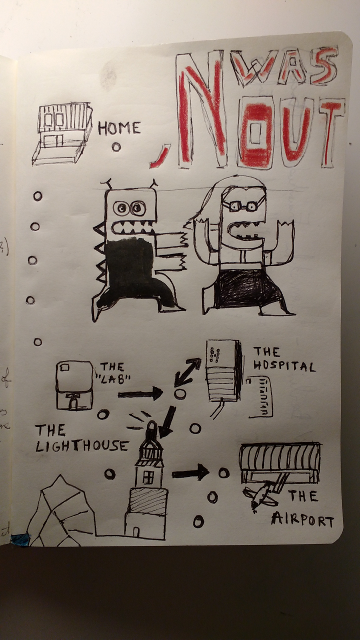 , N WAS
OUT
HOME
THE
"LAB"
THE
HOSPITAL
THE
LIGHTHOUSE
THE
AIRPORT